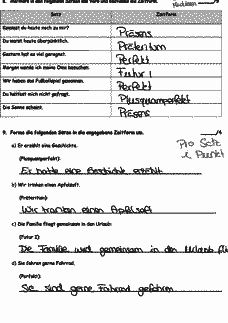 8. Markiere in den folgenden Sätzen das Verb und bestimme die Zeitform.
Satz Zeitform
Kommst du heute noch zu mir? Präsens
Du warst heute überpünktlich. Präteritum
Gestern hat es viel geregnet. Perfekt
Morgen werde ich meine Oma besuchen. Futur I
Wir haben das Fußballspiel gewonnen. Perfekt
Du hattest mich nicht gefragt. Plusquamperfekt
Die Sonne scheint. Präsens
9. Forme die folgenden Sätze in die angegebene Zeitform um. /4
Pro Satz
1 Punkt
a) Er erzählt eine Geschichte.
(Plusquamperfekt):
Er hatte eine Geschichte erzählt
b) Wir trinken einen Apfelsaft.
(Präteritum):
Wir tranken einen Apfelsaft
c) Die Familie fliegt gemeinsam in den Urlaub.
(Futur I):
Die Familie wird gemeinsam in den Urlaub
d) Sie fahren gerne Fahrrad.
(Perfekt):
Sie sind gerne Fahrrad gefahren